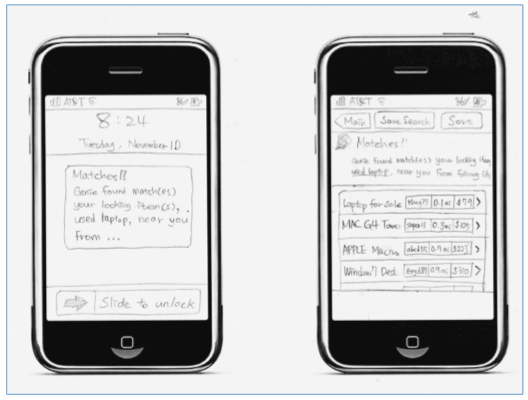 AT&T 86%
8:24
Tuesday, November 10
Matches!!
Genie found match(es)
your looking item(s),
used laptop, near you
from ...
Slide to unlock
AT&T 86%
Main Save Search Save
Matches!!
Genie found match(es) your looking
used laptop, near you from following
Laptop for sale 0.1mi $79
MAC G4 0.3mi
APPLE 0.7mi $223
Window7 Ded. 0.9mi $310